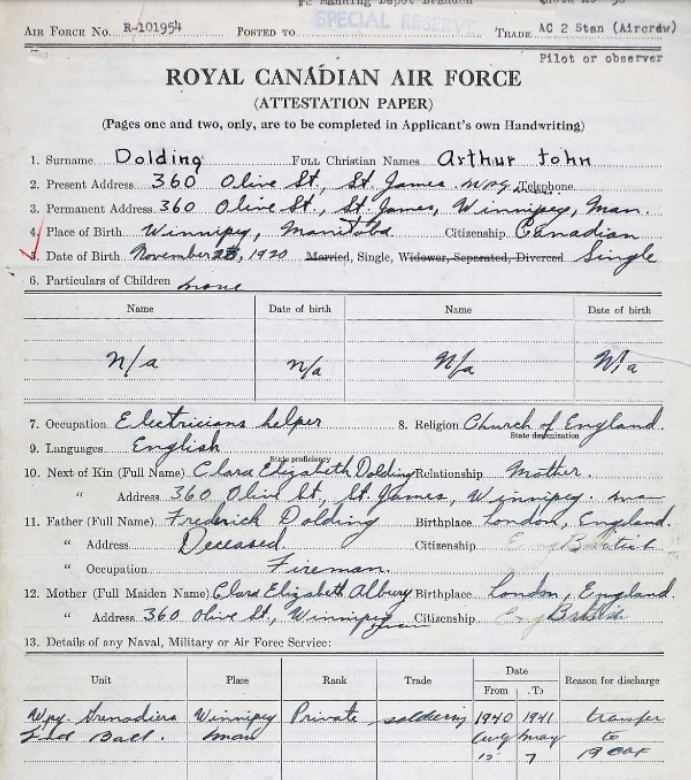 #2 Manning Depot Brandon
AIR FORCE No. R-101954 POSTED TO SPECIAL RESERVE TRADE AC 2 Stan (Aircrew)
Pilot or observer
ROYAL CANADIAN AIR FORCE
(ATTESTATION PAPER)
(Pages one and two, only, are to be completed in Applicant's own Handwriting)
1. Surname Dolding FULL Christian Names Arthur John
2. Present Address 360 Olive St., St. James. Wpg. Telephone
3. Permanent Address 360 Olive St., St. James, Winnipeg, Man.
4. Place of Birth Winnipeg, Manitoba Citizenship Canadian
5. Date of Birth November, 1920 Married, Single, Widower, Separated, Divorced Single
6. Particulars of Children none
Name Date of birth Name Date of birth
n/a n/a n/a n/a
7. Occupation Electricians helper 8. Religion Church of England.
State denomination
9. Languages English
State proficiency
10. Next of Kin (Full Name) Clara Elizabeth Dolding Relationship Mother.
" Address 360 Olive St., St. James, Winnipeg. man
11. Father (Full Name) Frederick Dolding Birthplace London, England.
" Address Deceased. Citizenship British
" Occupation Fireman.
12. Mother (Full Maiden Name) Clara Elizabeth Albury Birthplace London, England.
" Address 360 Olive St., Winnipeg Citizenship British
13. Details of any Naval, Military or Air Force Service:
Unit Place Rank Trade Date Reason for discharge
From To
Wpg. Grenadiers Winnipeg Private soldering 1940 1941 transfer
2nd Batt. man Aug May to
7 RCAF